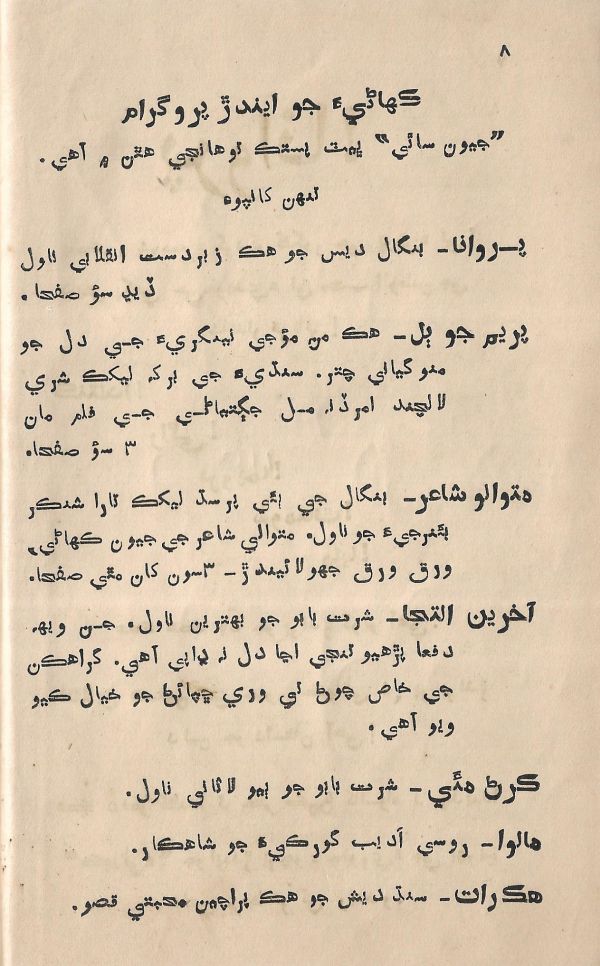 ٨
ڪهاڻيءَ جو ايندڙ پروگرام
”جيون ساٿي“ ڀيٽ پستڪ توهانجي هٿن ۾ آهي.
تنهن کانپوءِ
پروانا- بنگال ديس جو هڪ زبردست انقلابي ناول
ڏيڍ سؤ صفحا.
پريم جو ٻل- هڪ من مؤجي نينگريءَ جي دل جو
منوگياني چتر. سنڌيءَ جي برک ليکڪ شري
لالچند امرڏنہ مل جڳتياڻي جي قلم مان
٣ سؤ صفحا.
متوالو شاعر- بنگال جي ٻئي پرسڌ ليکڪ تارا شنڪر
بئنرجيءَ جو ناول. متوالي شاعر جي جيون ڪهاڻي،
ورق ورق جهولائيندڙ- ٣سون کان مٿي صفحا.
آخرين التجا- شرت بابو جو بهترين ناول. جن ويهہ
دفعا پڙهيو تنجي اڃا دل نہ ڍاپي آهي. گراهڪن
جي خاص چوڻ تي وري ڇپائڻ جو خيال ڪيو
ويو آهي.
ڪرڻ مئي- شرت بابو جو ٻيو لاثاني ناول.
مالوا- روسي اَديب گورڪيءَ جو شاهڪار.
هڪ رات- سنڌ ديش جو هڪ پراچين محبتي قصو.